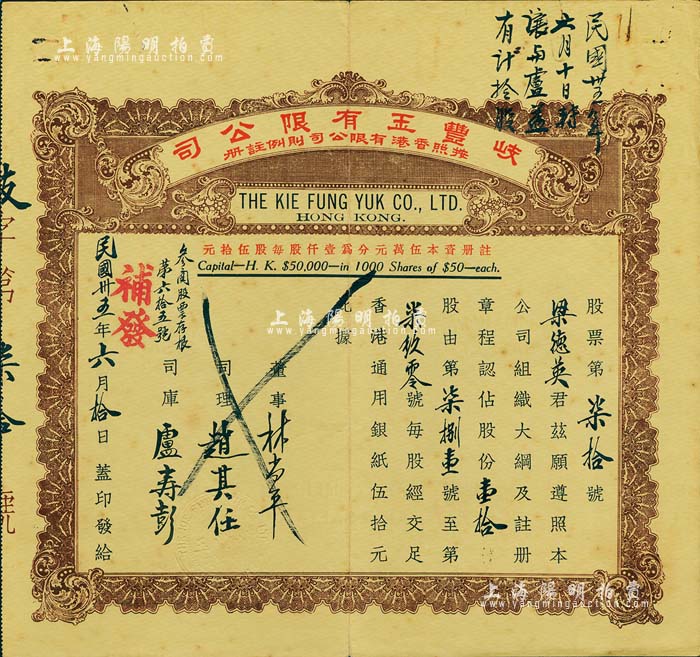 上海陽明拍賣
www.yangmingauction.com
上海陽明拍賣
www.yangmingauction.com
民國卅五年
六月十日轉
讓与盧益
有計拾股
岐豐玉有限公司
按照香港有限公司則例註册
THE KIE FUNG YUK CO., LTD.
HONG KONG.
註册資本伍萬元分爲壹仟股每股伍拾元
Capital—H. K. $50,000—in 1000 Shares of $50—each.
股票第柒拾號
梁德英君茲願遵照本
公司組織大綱及註册
章程認佔股份壹拾
股由第柒捌壹號至第
柒玖零號每股經交足
香港通用銀紙伍拾元
此據
董事林
司理趙其任
司庫盧寿彭
補發
参閱股票存根
第六拾五號
民國卅五年六月拾日蓋印發給
上海陽明拍賣
www.yangmingauction.com
上海陽明拍賣
www.yangmingauction.com